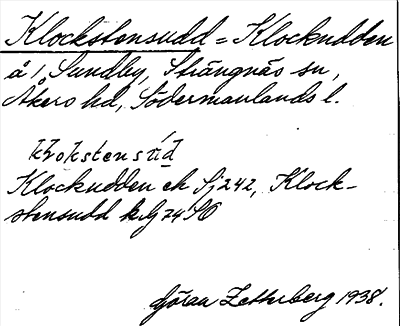 Klockstensudd = Klockudden
å 1, Sundby, Strängnäs sn,
Åkers hd, Södermanlands l.
klokstensùd
Klockudden ek Sj 242, Klock-
stensudd kg 74 SO
Göran Zetterberg 1938.